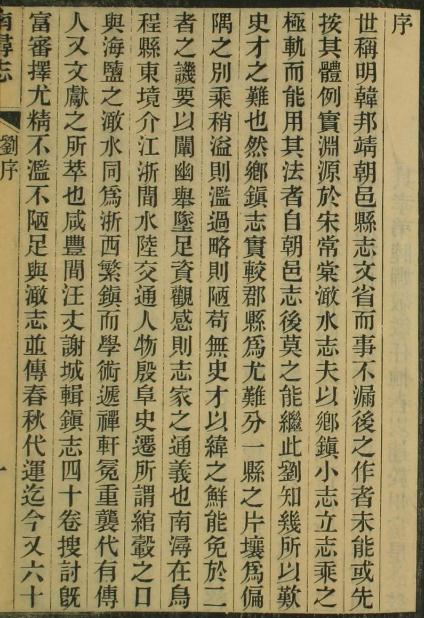 序
世稱明韓邦靖朝邑縣志文省而事不漏後之作者未能或先
按其體例實淵源於宋常棠澉水志夫以鄉鎮小志立志乘之
極軌而能用其法者自朝邑志後莫之能繼此劉知幾所以歎
史才之難也然鄉鎮志實較郡縣爲尤難分一縣之片壤爲偏
隅之別乘稍溢則濫過略則陋苟無史才以緯之鮮能免於二
者之譏要以闡幽舉墜足資觀感則志家之通義也南潯在烏
程縣東境介江浙間水陸交通人物殷阜史遷所謂綰轂之口
與海鹽之澉水同爲浙西繁鎮而學術遞禪軒冕重襲代有傳
人又文獻之所萃也咸豐間汪丈謝城輯鎮志四十卷搜討旣
富審擇尤精不濫不陋足與澉志並傳春秋代運迄今又六十
南潯志
劉序
一